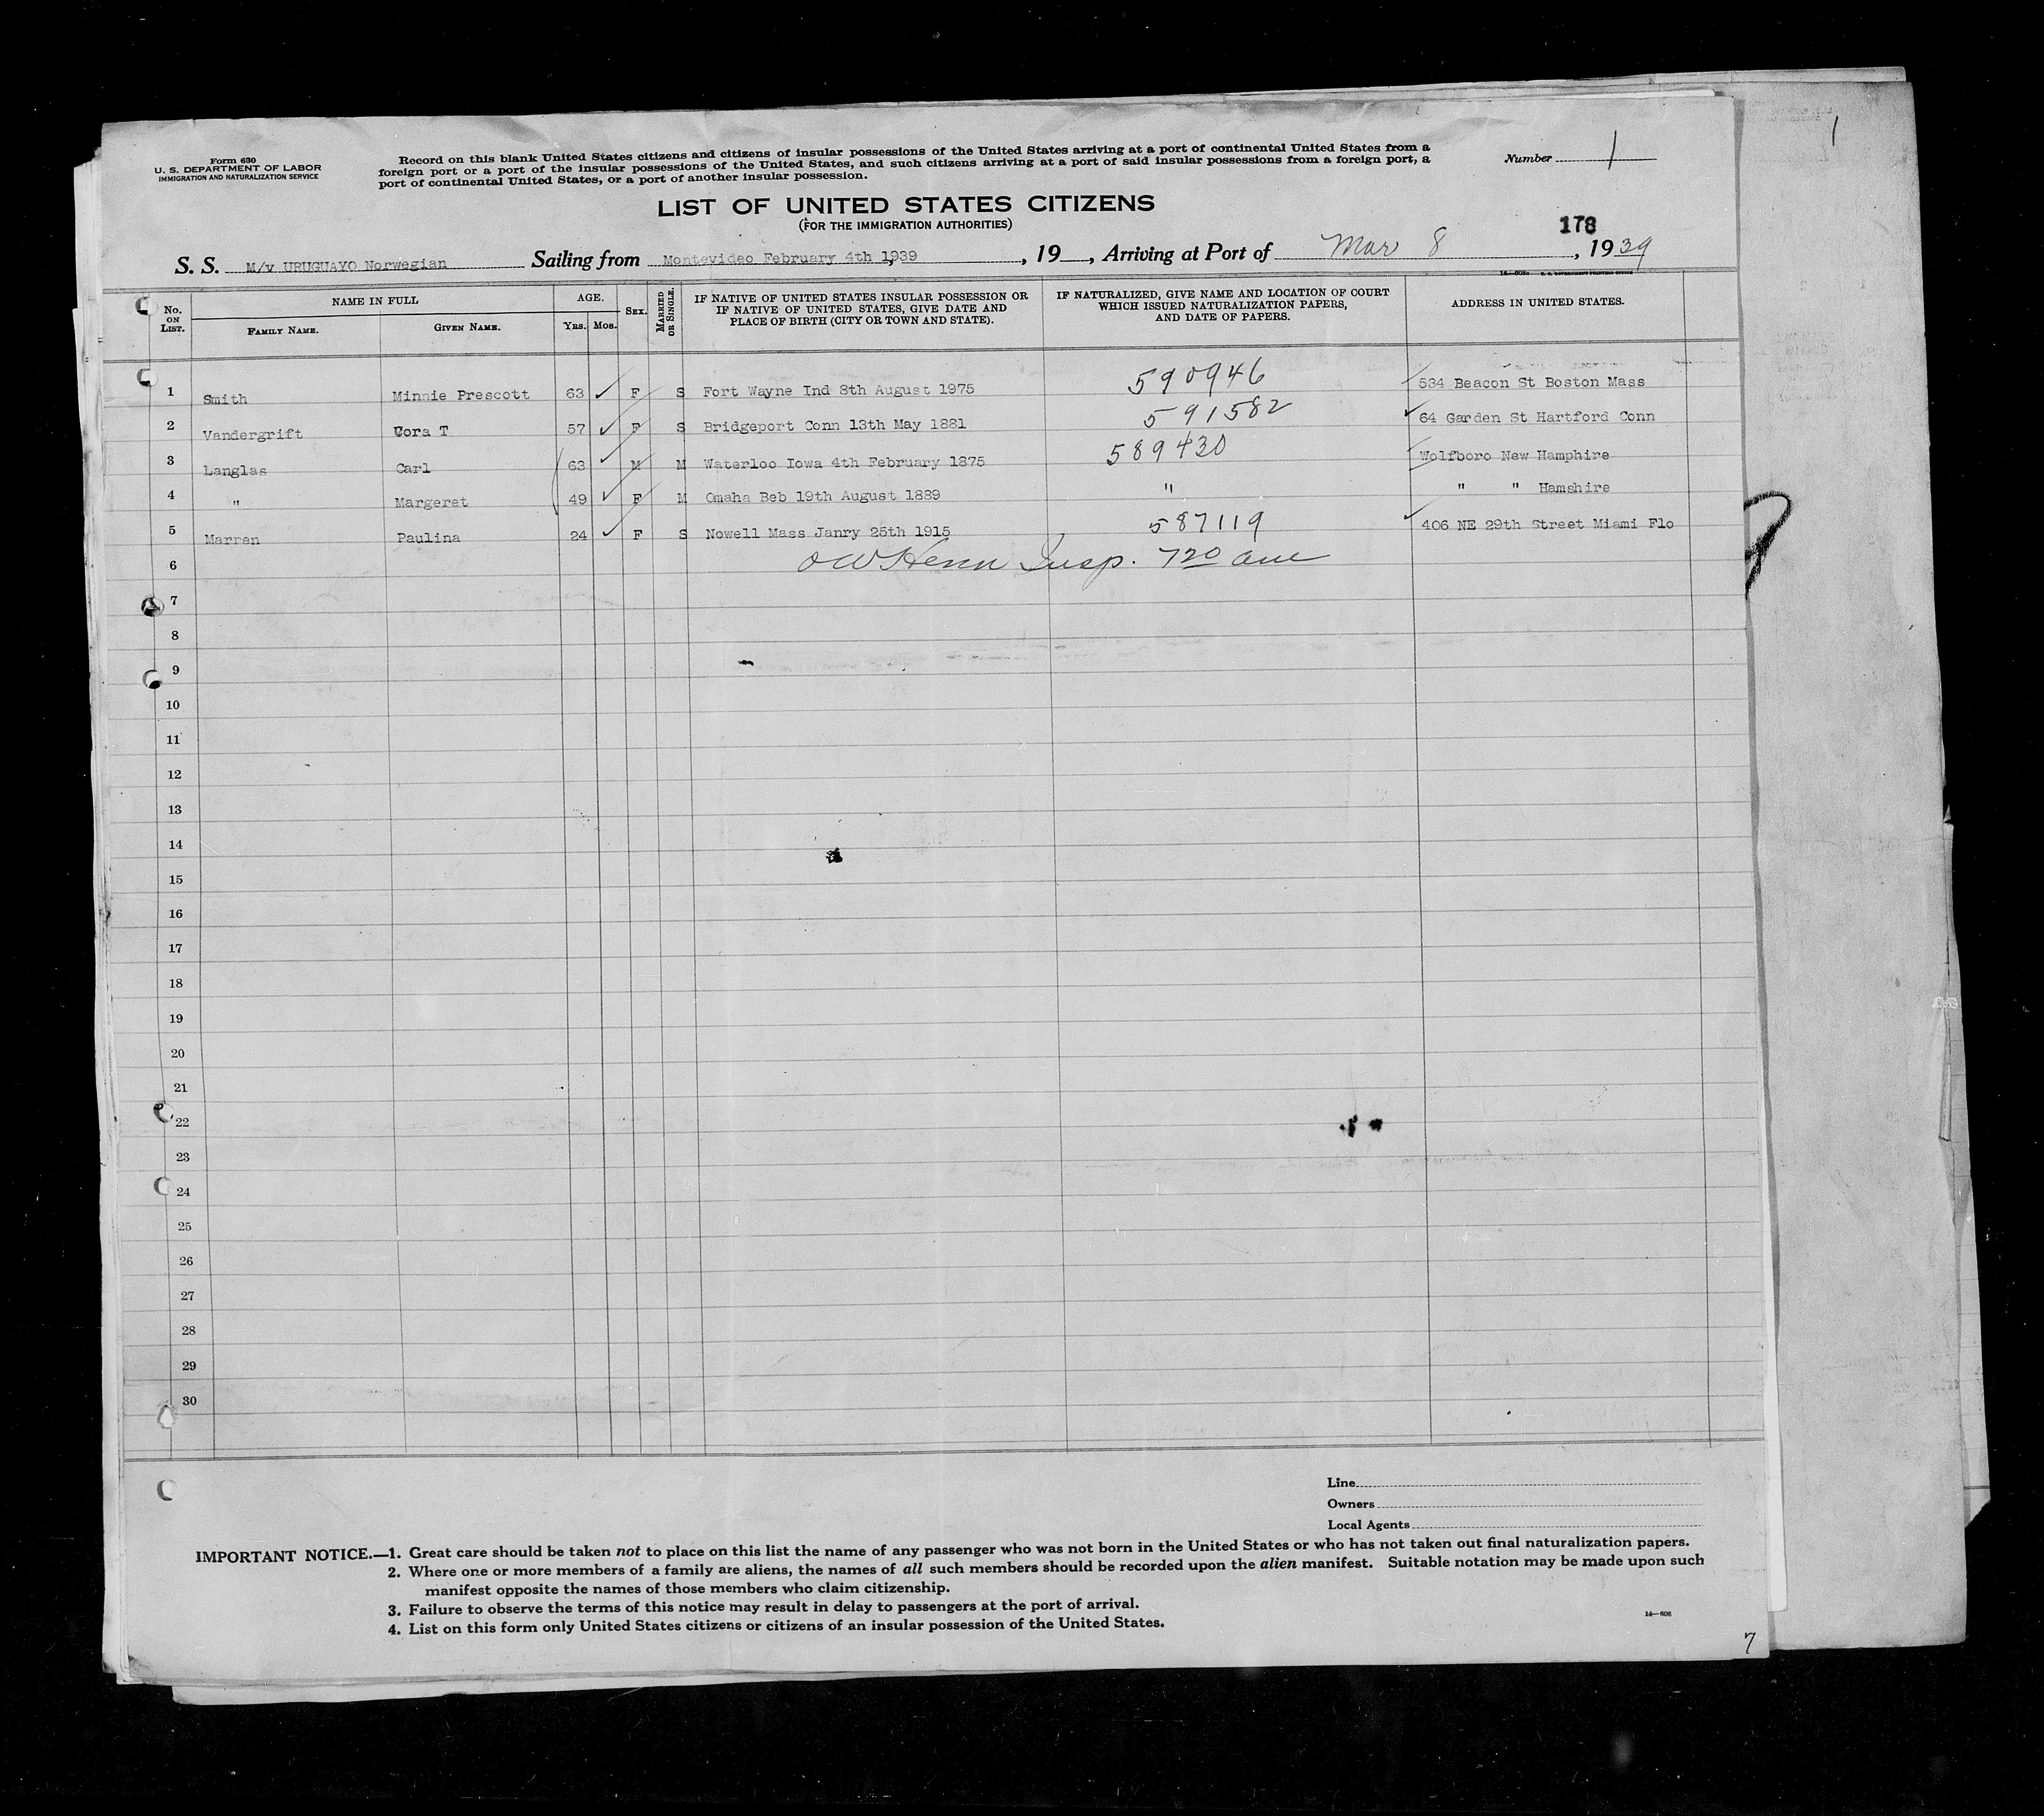 Form 630
U. S. DEPARTMENT OF LABOR
IMMIGRATION AND NATURALIZATION SERVICE
Record on this blank United States citizens and citizens of insular possessions of the United States arriving at a port of continental United States from a
foreign port or a port of the insular possessions of the United States, and such citizens arriving at a port of said insular possessions from a foreign port, a
port of continental United States, or a port of another insular possession.
Number 1
1
LIST OF UNITED STATES CITIZENS
(FOR THE IMMIGRATION AUTHORITIES)
178
S. S. M/v URUGUAYO Norwegian Sailing from Montevideo February 4th 1939, 19__, Arriving at Port of Mar 8, 1939
No. ON LIST. NAME IN FULL AGE. SEX. MARRIED OR SINGLE. IF NATIVE OF UNITED STATES INSULAR POSSESSION OR IF NATIVE OF UNITED STATES, GIVE DATE AND PLACE OF BIRTH (CITY OR TOWN AND STATE). IF NATURALIZED, GIVE NAME AND LOCATION OF COURT WHICH ISSUED NATURALIZATION PAPERS, AND DATE OF PAPERS. ADDRESS IN UNITED STATES.
FAMILY NAME. GIVEN NAME. YRS. MOS.
1 Smith Minnie Prescott 63 ✓ F S Fort Wayne Ind 8th August 1975 590946 534 Beacon St Boston Mass
2 Vandergrift Cora T 57 ✓ F S Bridgeport Conn 13th May 1881 591582 ✓ 64 Garden St Hartford Conn
3 Langlas Carl 63 ✓ M M Waterloo Iowa 4th February 1875 589430 Wolfboro New Hamphire
4 " Margeret 49 ✓ F M Omaha Beb 19th August 1889 " " " Hamshire
5 Marren Paulina 24 ✓ F S Nowell Mass Janry 25th 1915 587119 ✓ 406 NE 29th Street Miami Flo
6 Insp. 720
7
8
9
10
11
12
13
14
15
16
17
18
19
20
21
22
23
24
25
26
27
28
29
30
Line
Owners
Local Agents
IMPORTANT NOTICE.—1. Great care should be taken not to place on this list the name of any passenger who was not born in the United States or who has not taken out final naturalization papers.
2. Where one or more members of a family are aliens, the names of all such members should be recorded upon the alien manifest. Suitable notation may be made upon such
manifest opposite the names of those members who claim citizenship.
3. Failure to observe the terms of this notice may result in delay to passengers at the port of arrival.
4. List on this form only United States citizens or citizens of an insular possession of the United States.
14—608
7